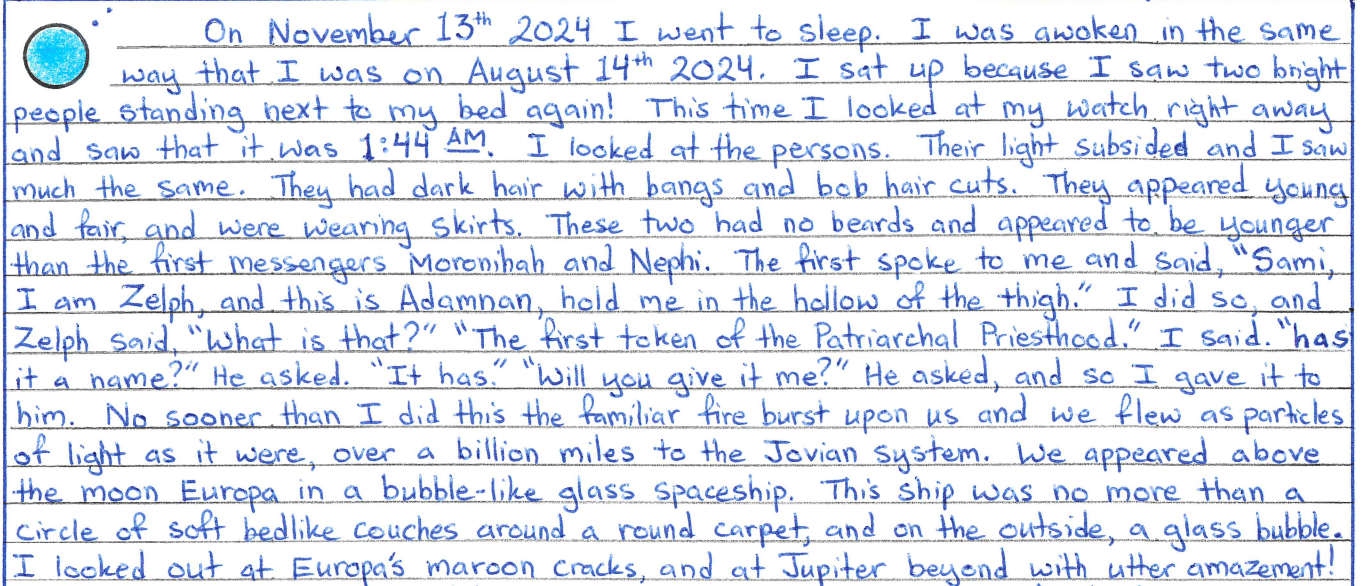 On November 13th 2024 I went to sleep. I was awoken in the same
way that I was on August 14th 2024. I sat up because I saw two bright
people standing next to my bed again! This time I looked at my watch right away
and saw that it was 1:44 AM. I looked at the persons. Their light subsided and I saw
much the same. They had dark hair with bangs and bob hair cuts. They appeared young
and fair, and were wearing skirts. These two had no beards and appeared to be younger
than the first messengers Moronihah and Nephi. The first spoke to me and said, "Sami,
I am Zelph, and this is Adamnan, hold me in the hollow of the thigh." I did so, and
Zelph said, "What is that?" "The first token of the Patriarchal Priesthood." I said. "has
it a name?" He asked. "It has." "Will you give it me?" He asked, and so I gave it to
him. No sooner than I did this the familiar fire burst upon us and we flew as particles
of light as it were, over a billion miles to the Jovian system. We appeared above
the moon Europa in a bubble-like glass spaceship. This ship was no more than a
circle of soft bedlike couches around a round carpet, and on the outside, a glass bubble.
I looked out at Europa's maroon cracks, and at Jupiter beyond with utter amazement!